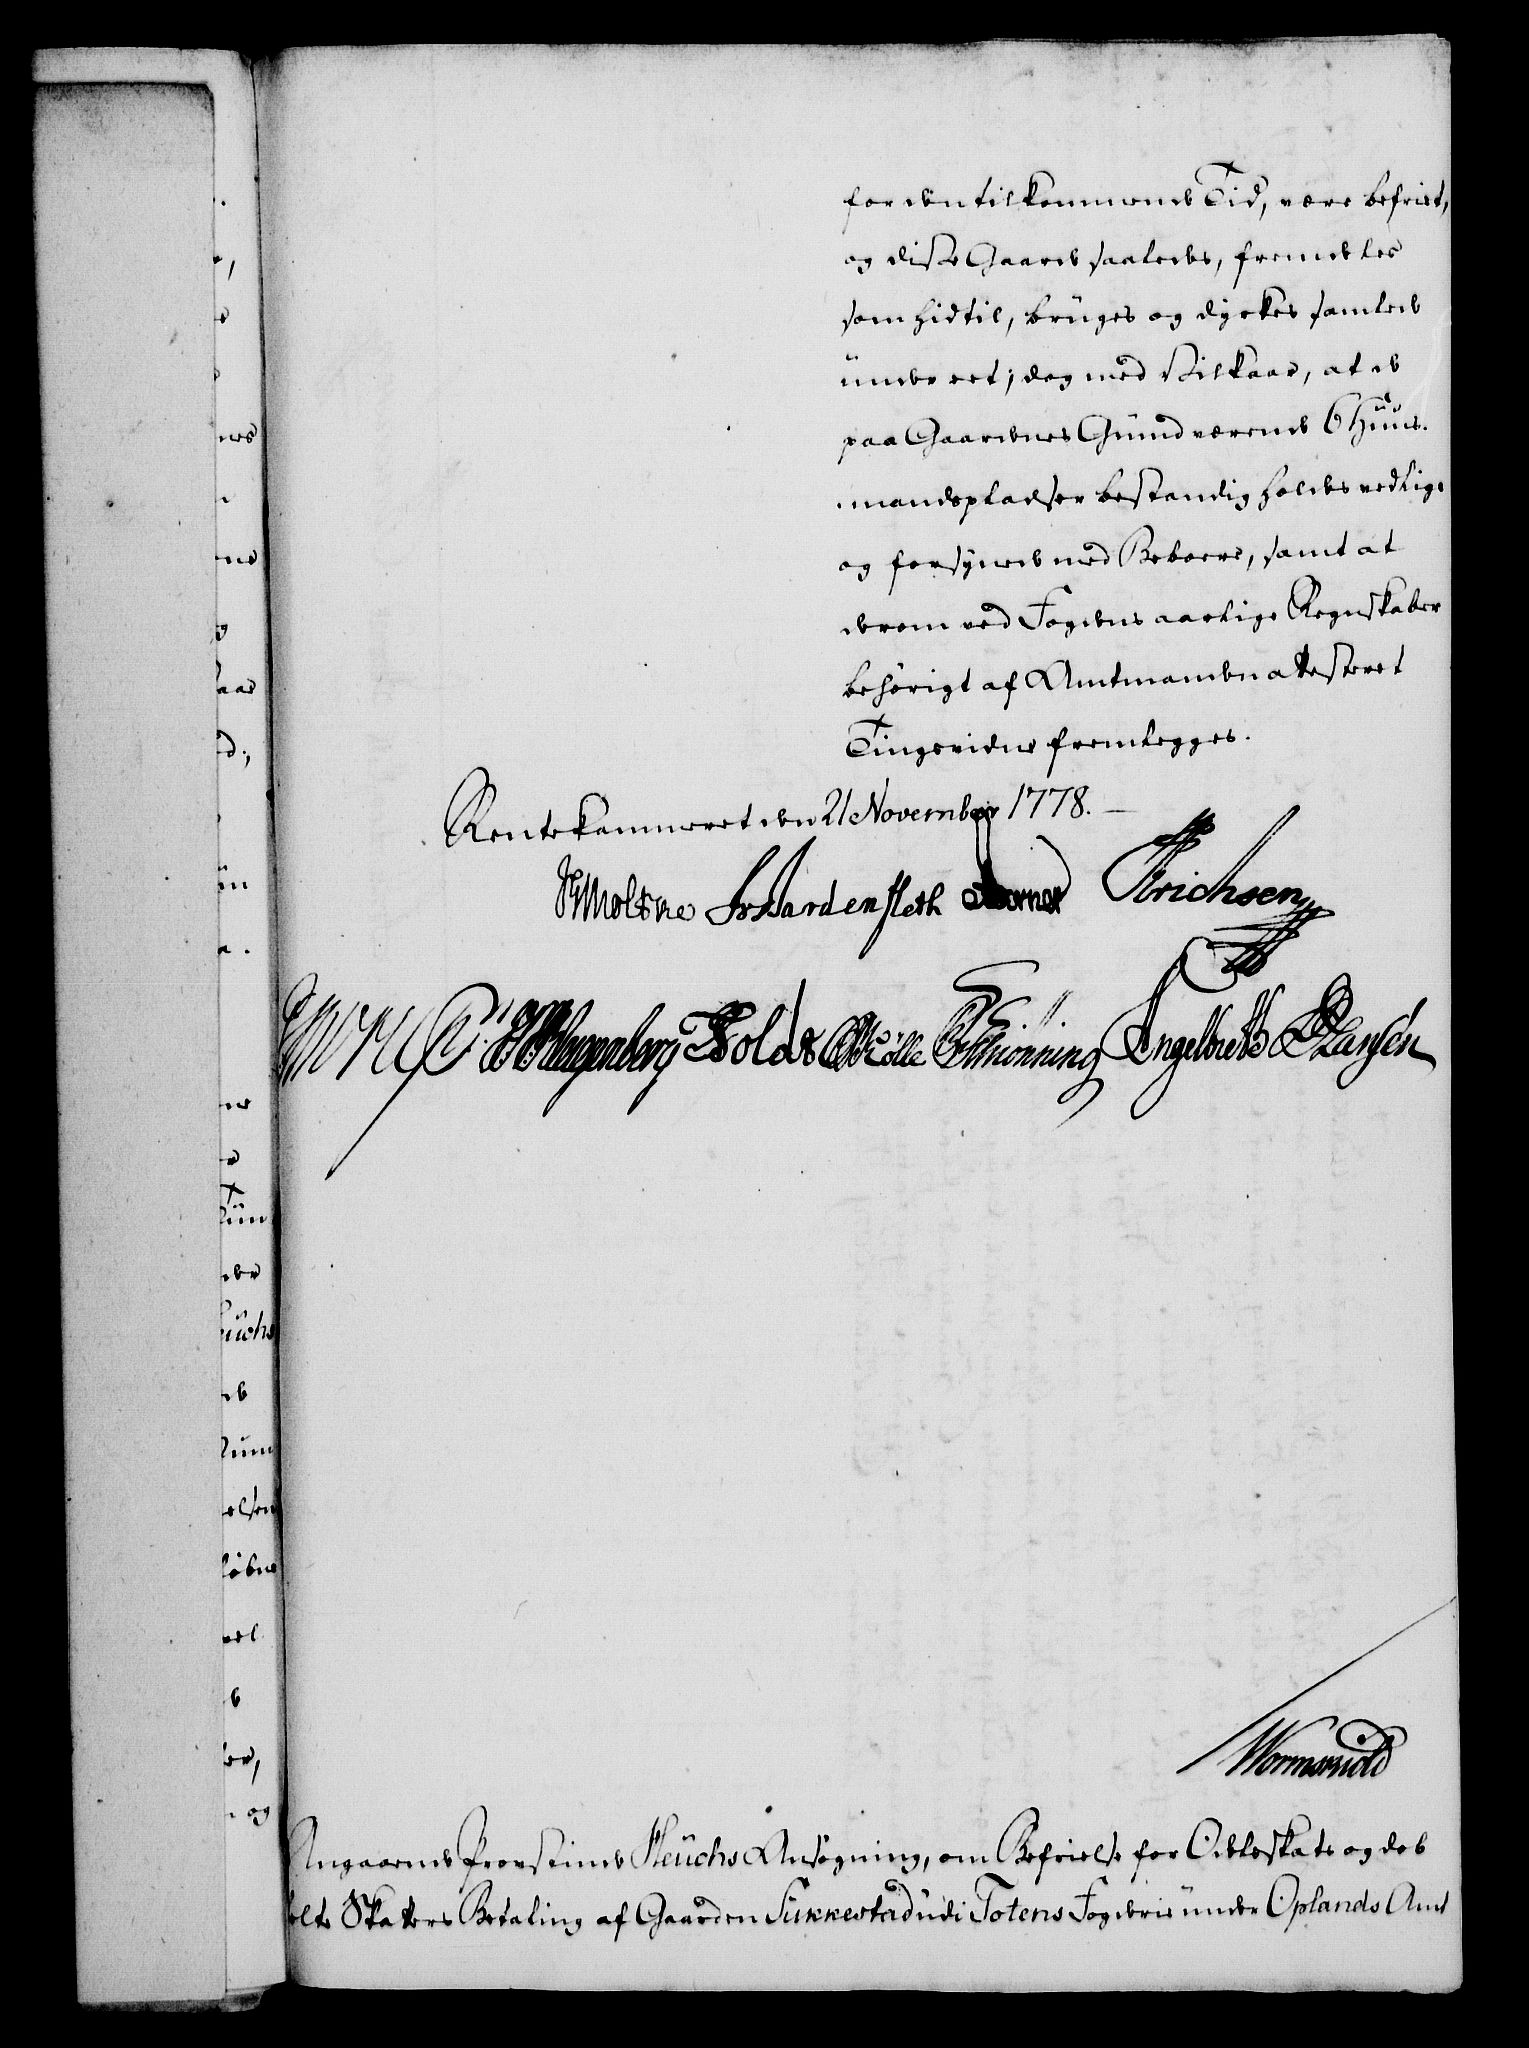 for den tilkommende Tid, være befriet,
og disse Gaarde saaledes, fremdeles
som hidtil, brüges og dyrkes samlede
ünder eet; dog med Vilkaar, at de
paa Gaardenes Grund værende 6 Hüüs-
mandspladser bestandig holdes vedlige
og forsynede med Beboere, samt at
derom ved Fogdens aarlige Regnskaber
behørigt af Amtmanden attesteret
Tingsvidne fremlegges.
Rentekammeret den 21 November 1778.
HMoltke Ardenfleth Erichsen
Holdt Mülle Schiönning Engelbreth Hansen
Wormskiold
Angaaende Provstinde Heüchs Ansøgning, om Befrielse for Odelsskats og dob
belte Skatters Betaling af Gaarden Sukkestad udi Totens Fogderie ünder Oplands Amt